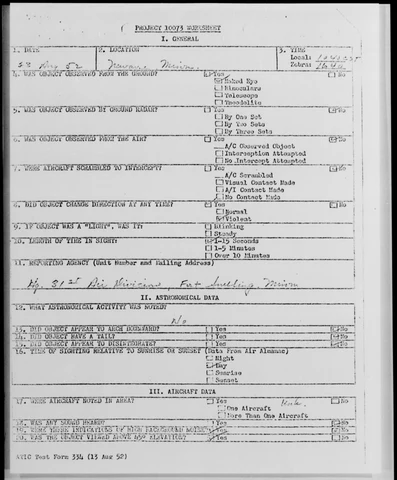 PROJECT 10073 WORKSHEET
I. GENERAL
1. DATE
2. LOCATION
3. TIME
Local:
Zebra:
Aug 52
4. WAS OBJECT OBSERVED FROM THE GROUND? Yes No
Naked Eye
Binoculars
Telescope
Theodolite
5. WAS OBJECT OBSERVED BY GROUND RADAR? Yes No
By One Set
By Two Sets
By Three Sets
6. WAS OBJECT OBSERVED FROM THE AIR? Yes No
A/C Observed Object
Interception Attempted
No Intercept Attempted
7. WERE AIRCRAFT SCRAMBLED TO INTERCEPT? Yes No
A/C Scrambled
Visual Contact Made
A/I Contact Made
No Contact Made
8. DID OBJECT CHANGE DIRECTION AT ANY TIME? Yes No
Normal
Violent
9. IF OBJECT WAS A "LIGHT", WAS IT: Blinking
Steady
10. LENGTH OF TIME IN SIGHT: 1-15 Seconds
1-5 Minutes
Over 10 Minutes
11. REPORTING AGENCY (Unit Number and Mailing Address)
Hq. 31st Air Division, Fort Snelling, Minn
II. ASTRONOMICAL DATA
12. WHAT ASTRONOMICAL ACTIVITY WAS NOTED?
No
13. DID OBJECT APPEAR TO ARCH DOWNWARD? Yes No
14. DID OBJECT HAVE A TAIL? Yes No
15. DID OBJECT APPEAR TO DISINTEGRATE? Yes No
16. TIME OF SIGHTING RELATIVE TO SUNRISE OR SUNSET (Data From Air Almanac)
Night
Day
Sunrise
Sunset
III. AIRCRAFT DATA
17. WERE AIRCRAFT NOTED IN AREA? Yes Unk No
One Aircraft
More Than One Aircraft
18. WAS ANY SOUND HEARD? Yes No
19. WERE THERE INDICATIONS OF HIGH BACKGROUND NOISE? Yes No
20. WAS THE OBJECT VIEWED ABOVE 45° ELEVATION? Yes No
ATIC Test Form 334 (13 Aug 52)